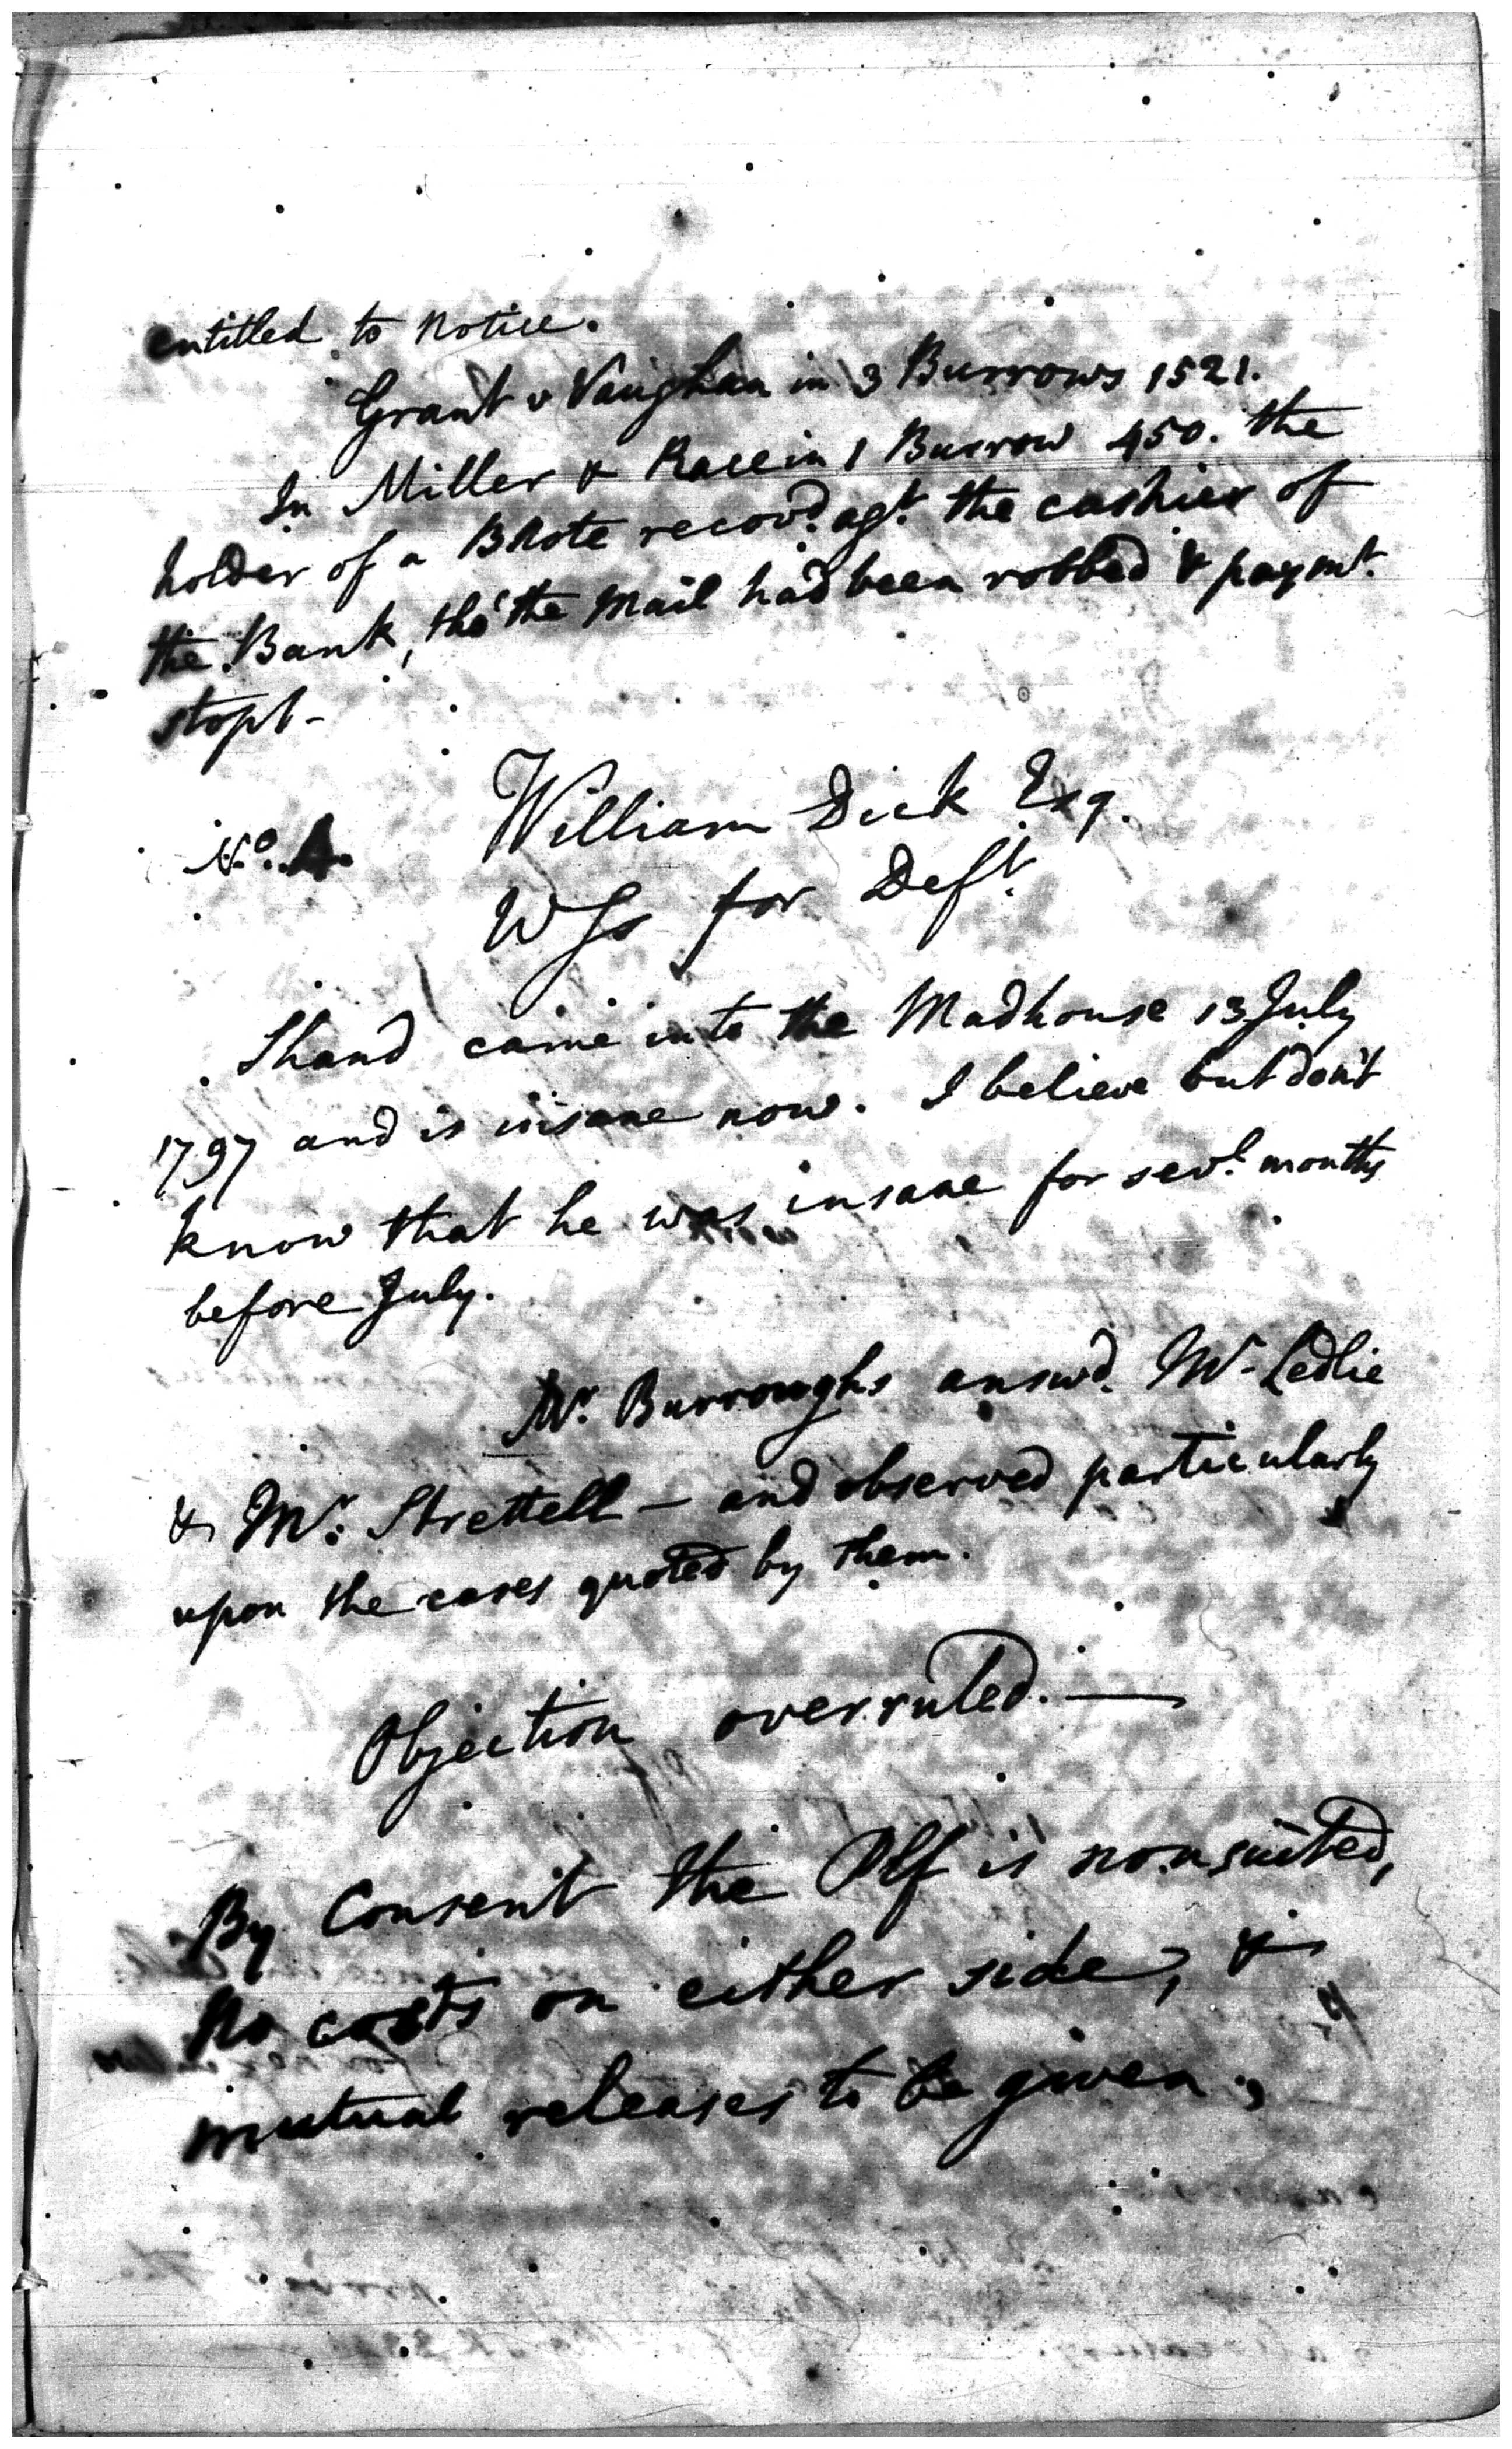 entitled to Notice.
Grant v Vaughan in 3 Burrows 1521.
In Miller & Race in 1 Burrow 450. the
holder of a BNote recov.d ag.t the cashier of
the Bank, tho' the Mail had been robbed & paym.t
stopt-
William Dick Esq.
N.o 4.
Ws for Def.t
Shand came into the Madhouse 13 July
1797 and is insane now. I believe but don't
know that he was insane for sev.l months
before July.
M.r Burroughs answ.d M.r Ledlie
& M.r Strettell - and observed particularly
upon the cases quoted by them.
Objection overruled. —
By Consent the Plf is nonsuited,
No costs on either side, &
mutual releases to be given.,